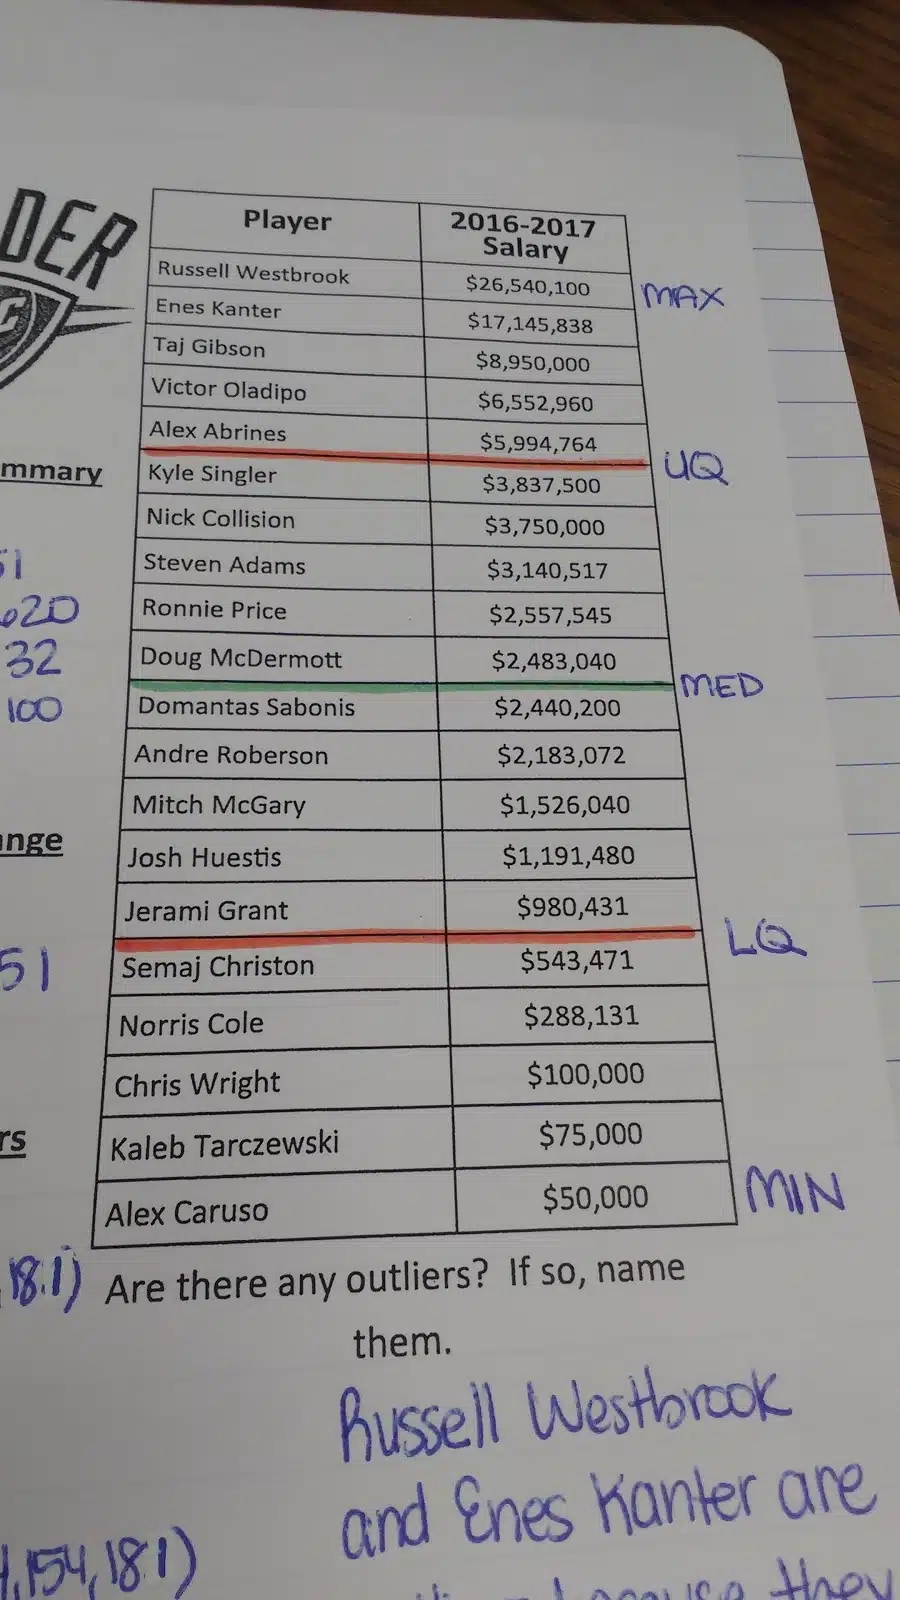 DER
C
Player 2016-2017 Salary
Russell Westbrook $26,540,100 MAX
Enes Kanter $17,145,838
Taj Gibson $8,950,000
Victor Oladipo $6,552,960
Alex Abrines $5,994,764
mmary UQ
Kyle Singler $3,837,500
Nick Collision $3,750,000
51 Steven Adams $3,140,517
620 Ronnie Price $2,557,545
32 Doug McDermott $2,483,040
MED
100 Domantas Sabonis $2,440,200
Andre Roberson $2,183,072
Mitch McGary $1,526,040
nge Josh Huestis $1,191,480
Jerami Grant $980,431
LQ
51 Semaj Christon $543,471
Norris Cole $288,131
Chris Wright $100,000
rs Kaleb Tarczewski $75,000
Alex Caruso $50,000 MIN
18.1) Are there any outliers? If so, name
them.
Russell Westbrook
and Enes Kanter are
,154,18.1) because they